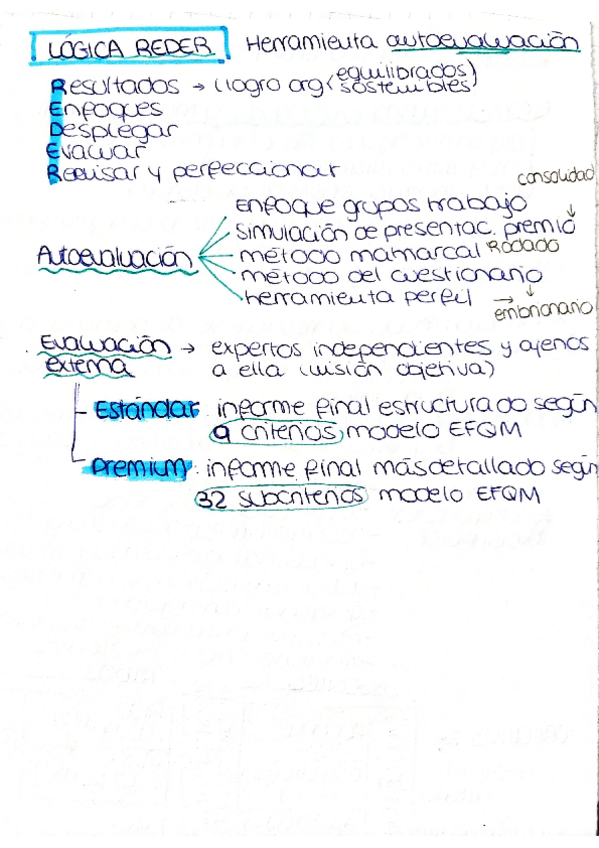 LÓGICA REDER Herramienta autoevaluación
Resultados → (logro org (equilibrados)
sostenibles
Enfoques
Desplegar
Evaluar
Revisar y perfeccionar
consolidad
enfoque grupos trabajo
simulación de presentac. premio
Autoevaluación método matriarcal Rodado
método del cuestionario
herramienta perfil →
embrionario
Evaluación → expertos independientes y ajenos
externa a ella (visión objetiva)
Estándar: informe final estructurado según
9 criterios modelo EFQM
Premium: informe final más detallado según
32 subcriterios modelo EFQM